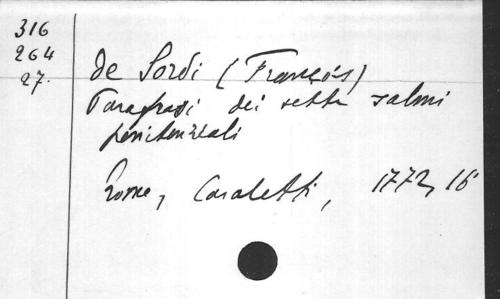 316
264
27.
de Sordi (François)
Parafrasi dei sette salmi
penitenziali
Rome, Casaletti, 1772, 16°